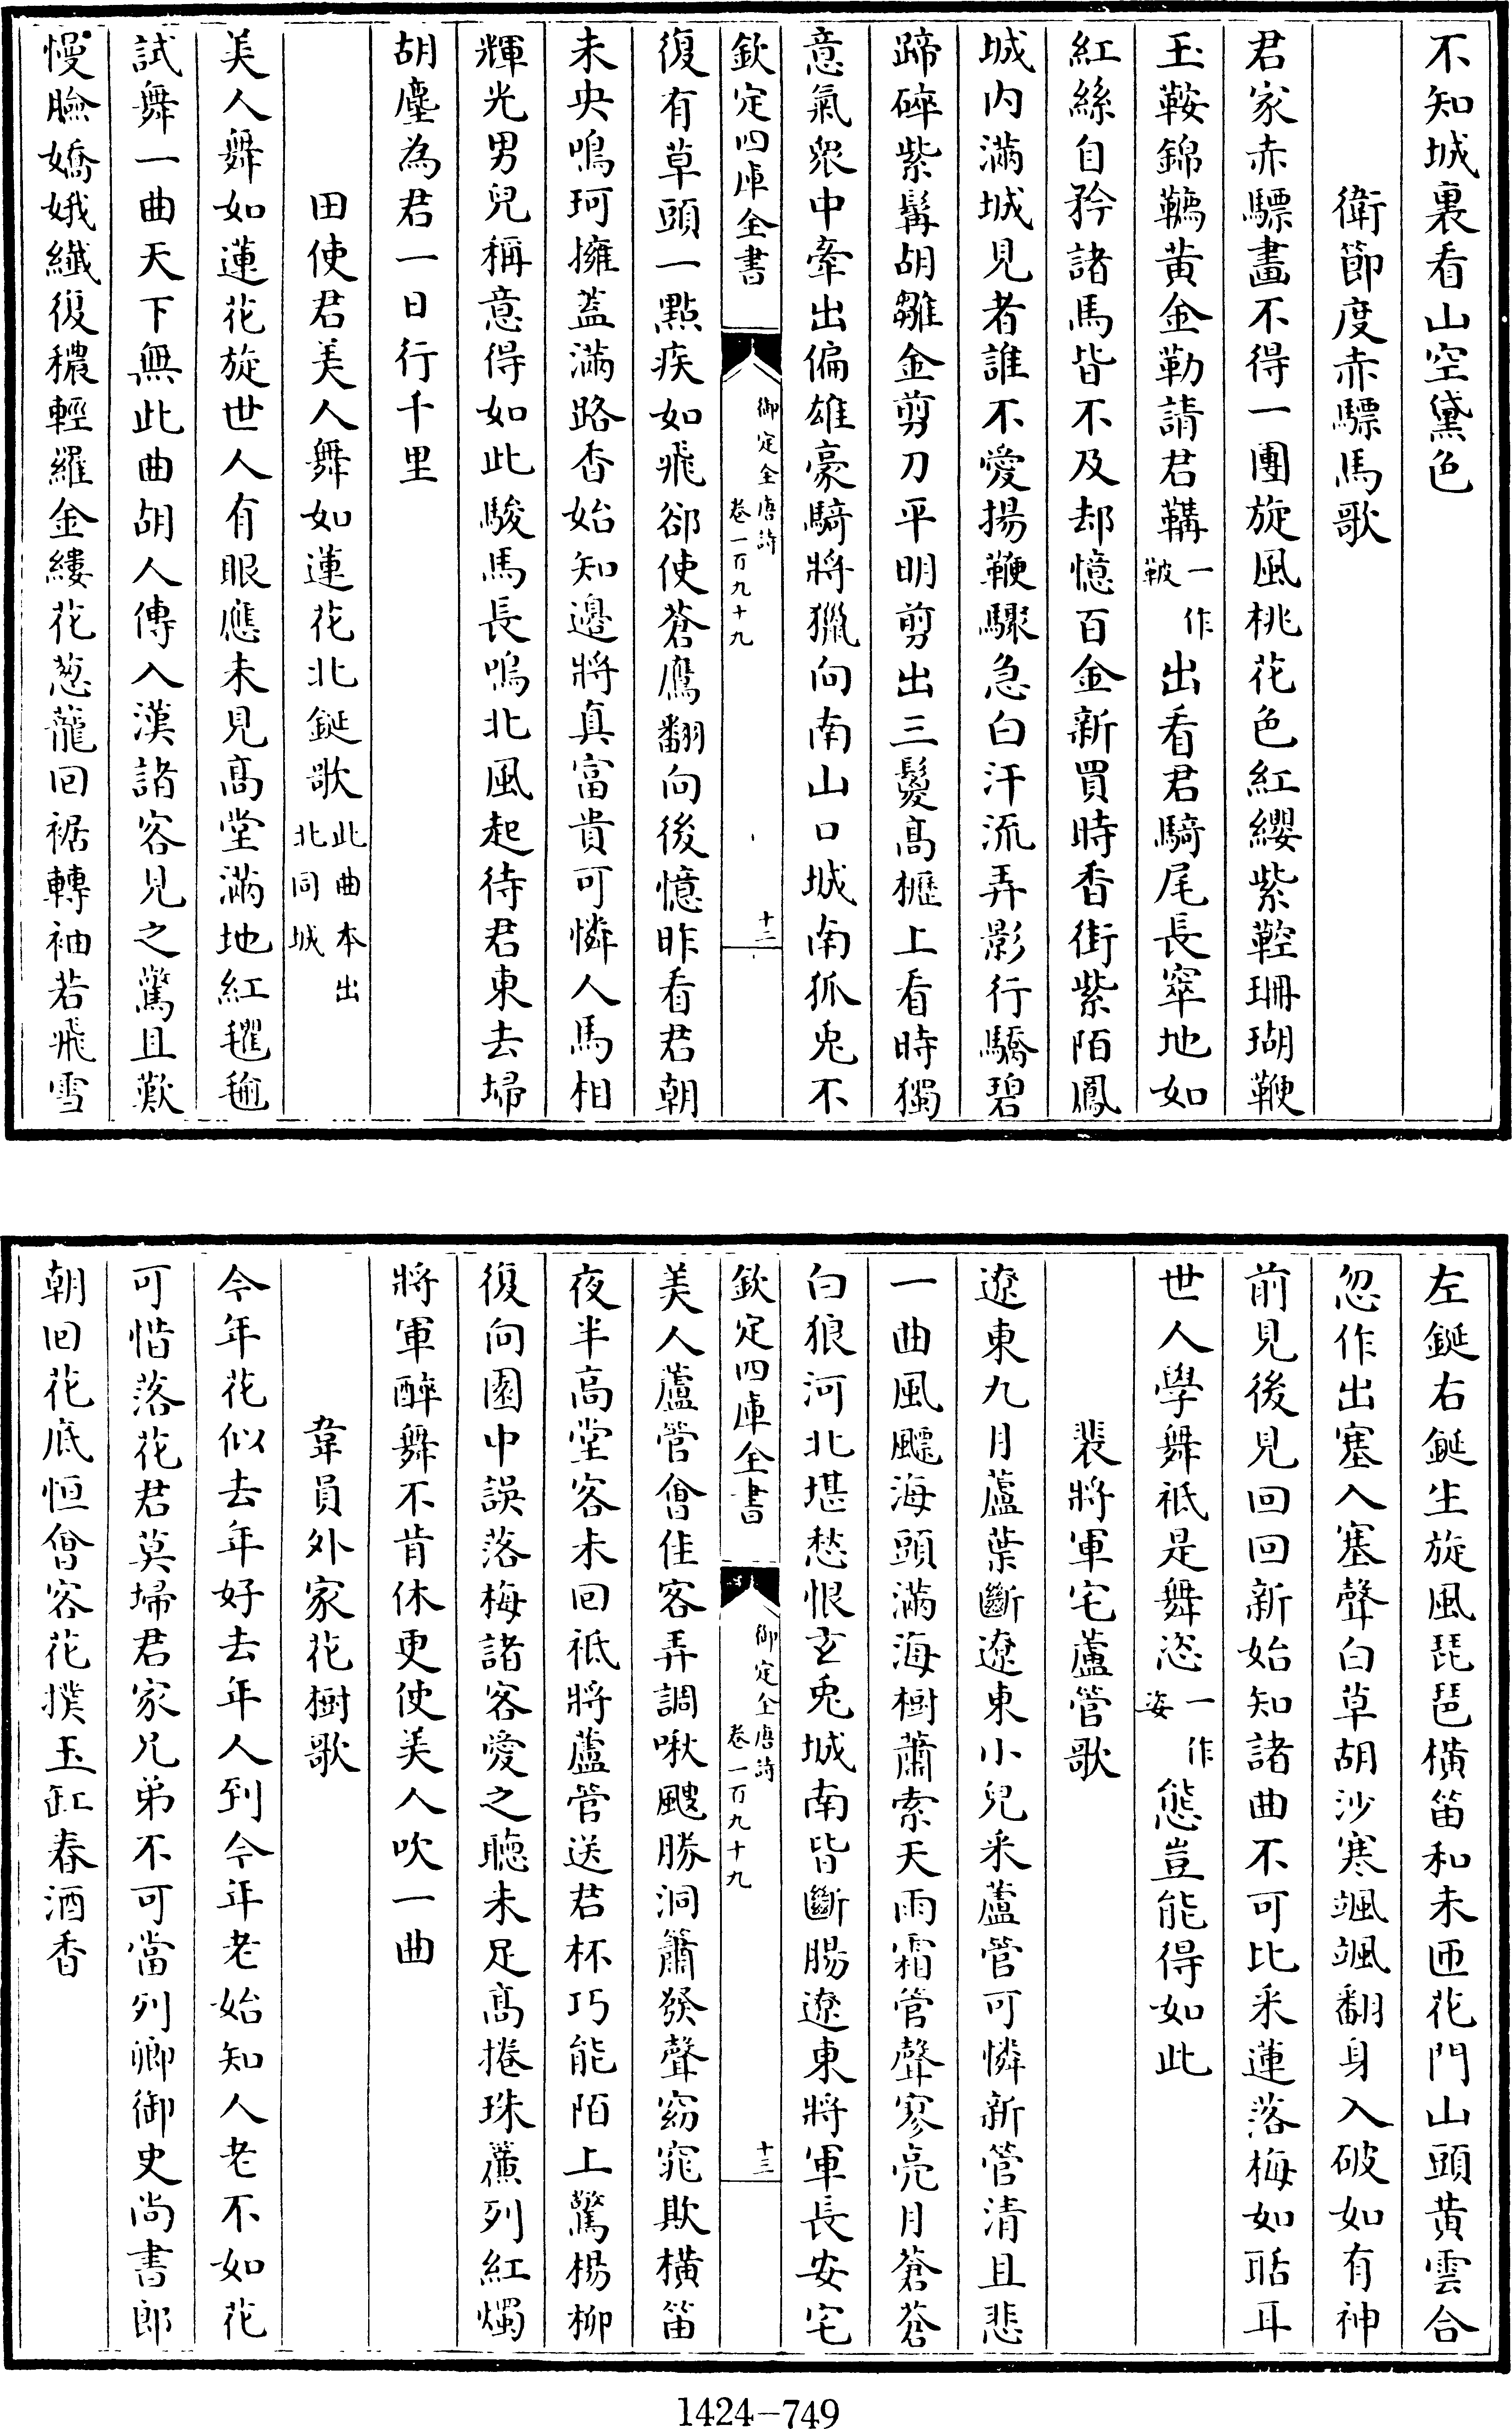 不知城裏看山空黛色
衛節度赤驃馬歌
君家赤驃畫不得一團旋風桃花色紅纓紫鞚珊瑚鞭
玉鞍錦韉黃金勒請君鞲一作鞁出看君騎尾長窣地如
紅絲自矜諸馬皆不及却憶百金新買時香街紫陌鳳
城內滿城見者誰不愛揚鞭驟急白汗流弄影行驕碧
蹄碎紫髯胡雛金剪刀平明剪出三鬉高櫪上看時獨
意氣衆中牽出偏雄豪騎將獵向南山口城南狐兎不
欽定四庫全書 御定全唐詩 卷一百九十九 十二
復有草頭一點疾如飛卻使蒼鷹翻向後憶昨看君朝
未央鳴珂擁蓋滿路香始知邊將真富貴可憐人馬相
輝光男兒稱意得如此駿馬長鳴北風起待君東去埽
胡塵為君一日行千里
田使君美人舞如蓮花北鋋歌此曲本出北同城
美人舞如蓮花旋世人有眼應未見高堂滿地紅氍毹
試舞一曲天下無此曲胡人傳入漢諸客見之驚且歎
慢臉嬌娥纖復穠輕羅金縷花葱蘢回裾轉袖若飛雪
左鋋右鋋生旋風琵琶橫笛和未匝花門山頭黃雲合
忽作出塞入塞聲白草胡沙寒颯颯翻身入破如有神
前見後見回回新始知諸曲不可比采蓮落梅如聒耳
世人學舞祇是舞恣一作姿態豈能得如此
裴將軍宅蘆管歌
遼東九月蘆葉斷遼東小兒采蘆管可憐新管清且悲
一曲風飄海頭滿海樹蕭索天雨霜管聲寥亮月蒼蒼
白狼河北堪愁恨玄兎城南皆斷腸遼東將軍長安宅
欽定四庫全書 御定全唐詩 卷一百九十九 十三
美人蘆管會佳客弄調啾颼勝洞簫發聲窈窕欺橫笛
夜半高堂客未回祇將蘆管送君杯巧能陌上驚楊柳
復向園中誤落梅諸客愛之聽未足高捲珠簾列紅燭
將軍醉舞不肯休更使美人吹一曲
韋員外家花樹歌
今年花似去年好去年人到今年老始知人老不如花
可惜落花君莫埽君家兄弟不可當列卿御史尚書郎
朝回花底恒會客花撲玉缸春酒香
1424-749